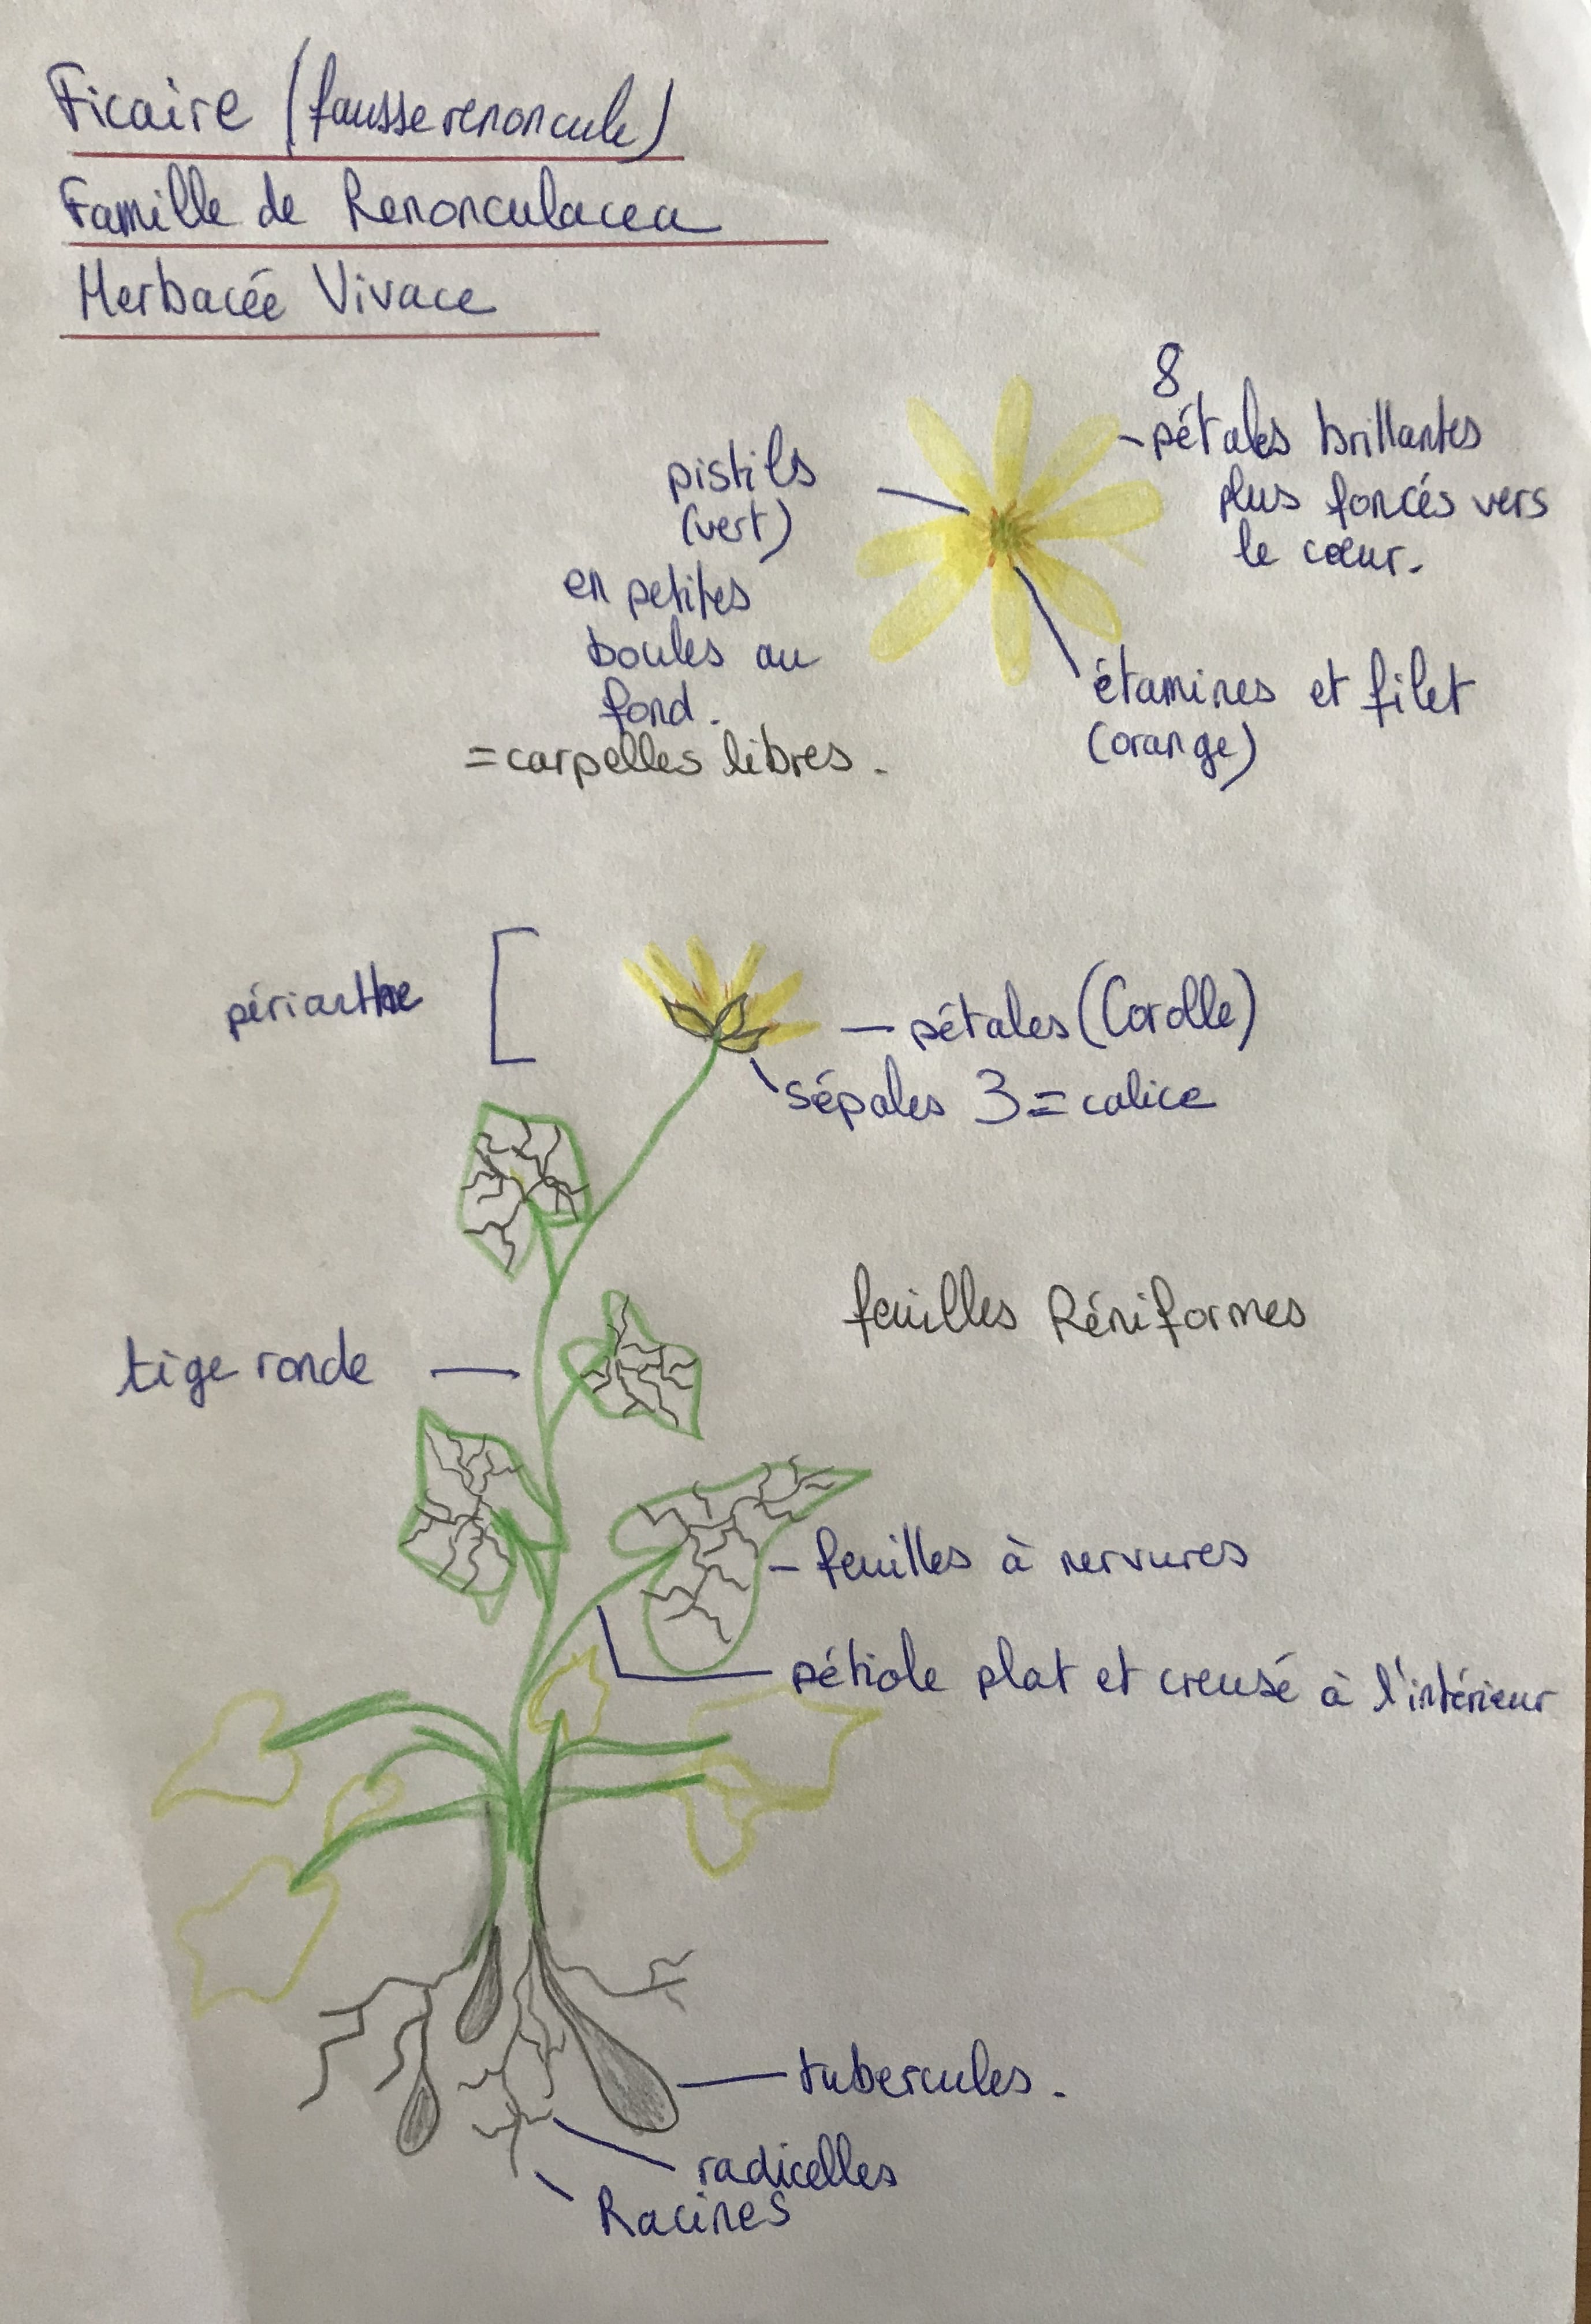 Ficaire (fausse renoncule)
Famille de Renonculacea
Herbacée Vivace
8
pétales brillantes
plus foncés vers
le cœur.
pistils
(vert)
en petites
boules au
fond.
= carpelles libres.
étamines et filet
(orange)
périanthe
pétales (Corolle)
sépales 3 = calice
feuilles Réniformes
tige ronde
feuilles à nervures
pétiole plat et creusé à l'intérieur
tubercules.
radicelles
Racines